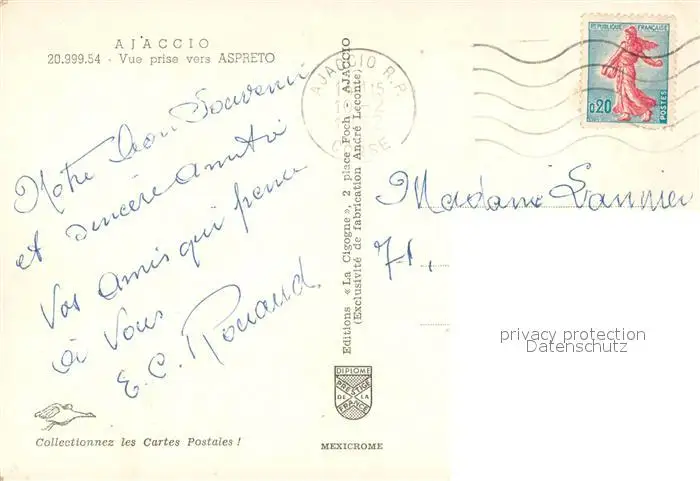 AJACCIO
20.999.54 - Vue prise vers ASPRETO
Notre bon Souvenir
et sincère amitié
Vos amis qui pense
à Vous
E. C. Rouaud.
Collectionnez les Cartes Postales !
Editions « La Cigogne », 2 place Foch - AJACCIO
(Exclusivité de fabrication André Leconte)
DIPLOME
PRESTIGE
DE LA
FRANCE
MEXICROME
AJACCIO R.P.
CORSE
REPUBLIQUE FRANÇAISE
0,20
POSTES
Madame Lannier
71,
privacy protection
Datenschutz